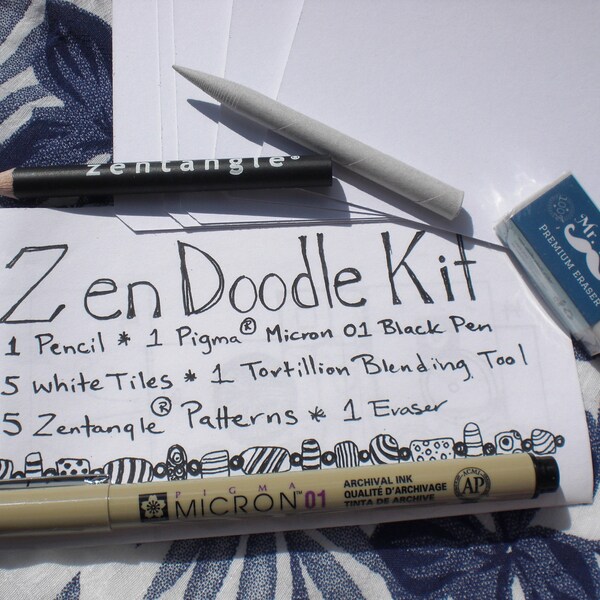 zentangle®
Mr.
PREMIUM ERASER
Zen Doodle Kit
1 Pencil * 1 Pigma® Micron 01 Black Pen
5 White Tiles * 1 Tortillion Blending Tool
5 Zentangle® Patterns * 1 Eraser
PIGMA
MICRON™ 01
ARCHIVAL INK
QUALITÉ D'ARCHIVAGE
TINTA DE ARCHIVE
ACMI
AP